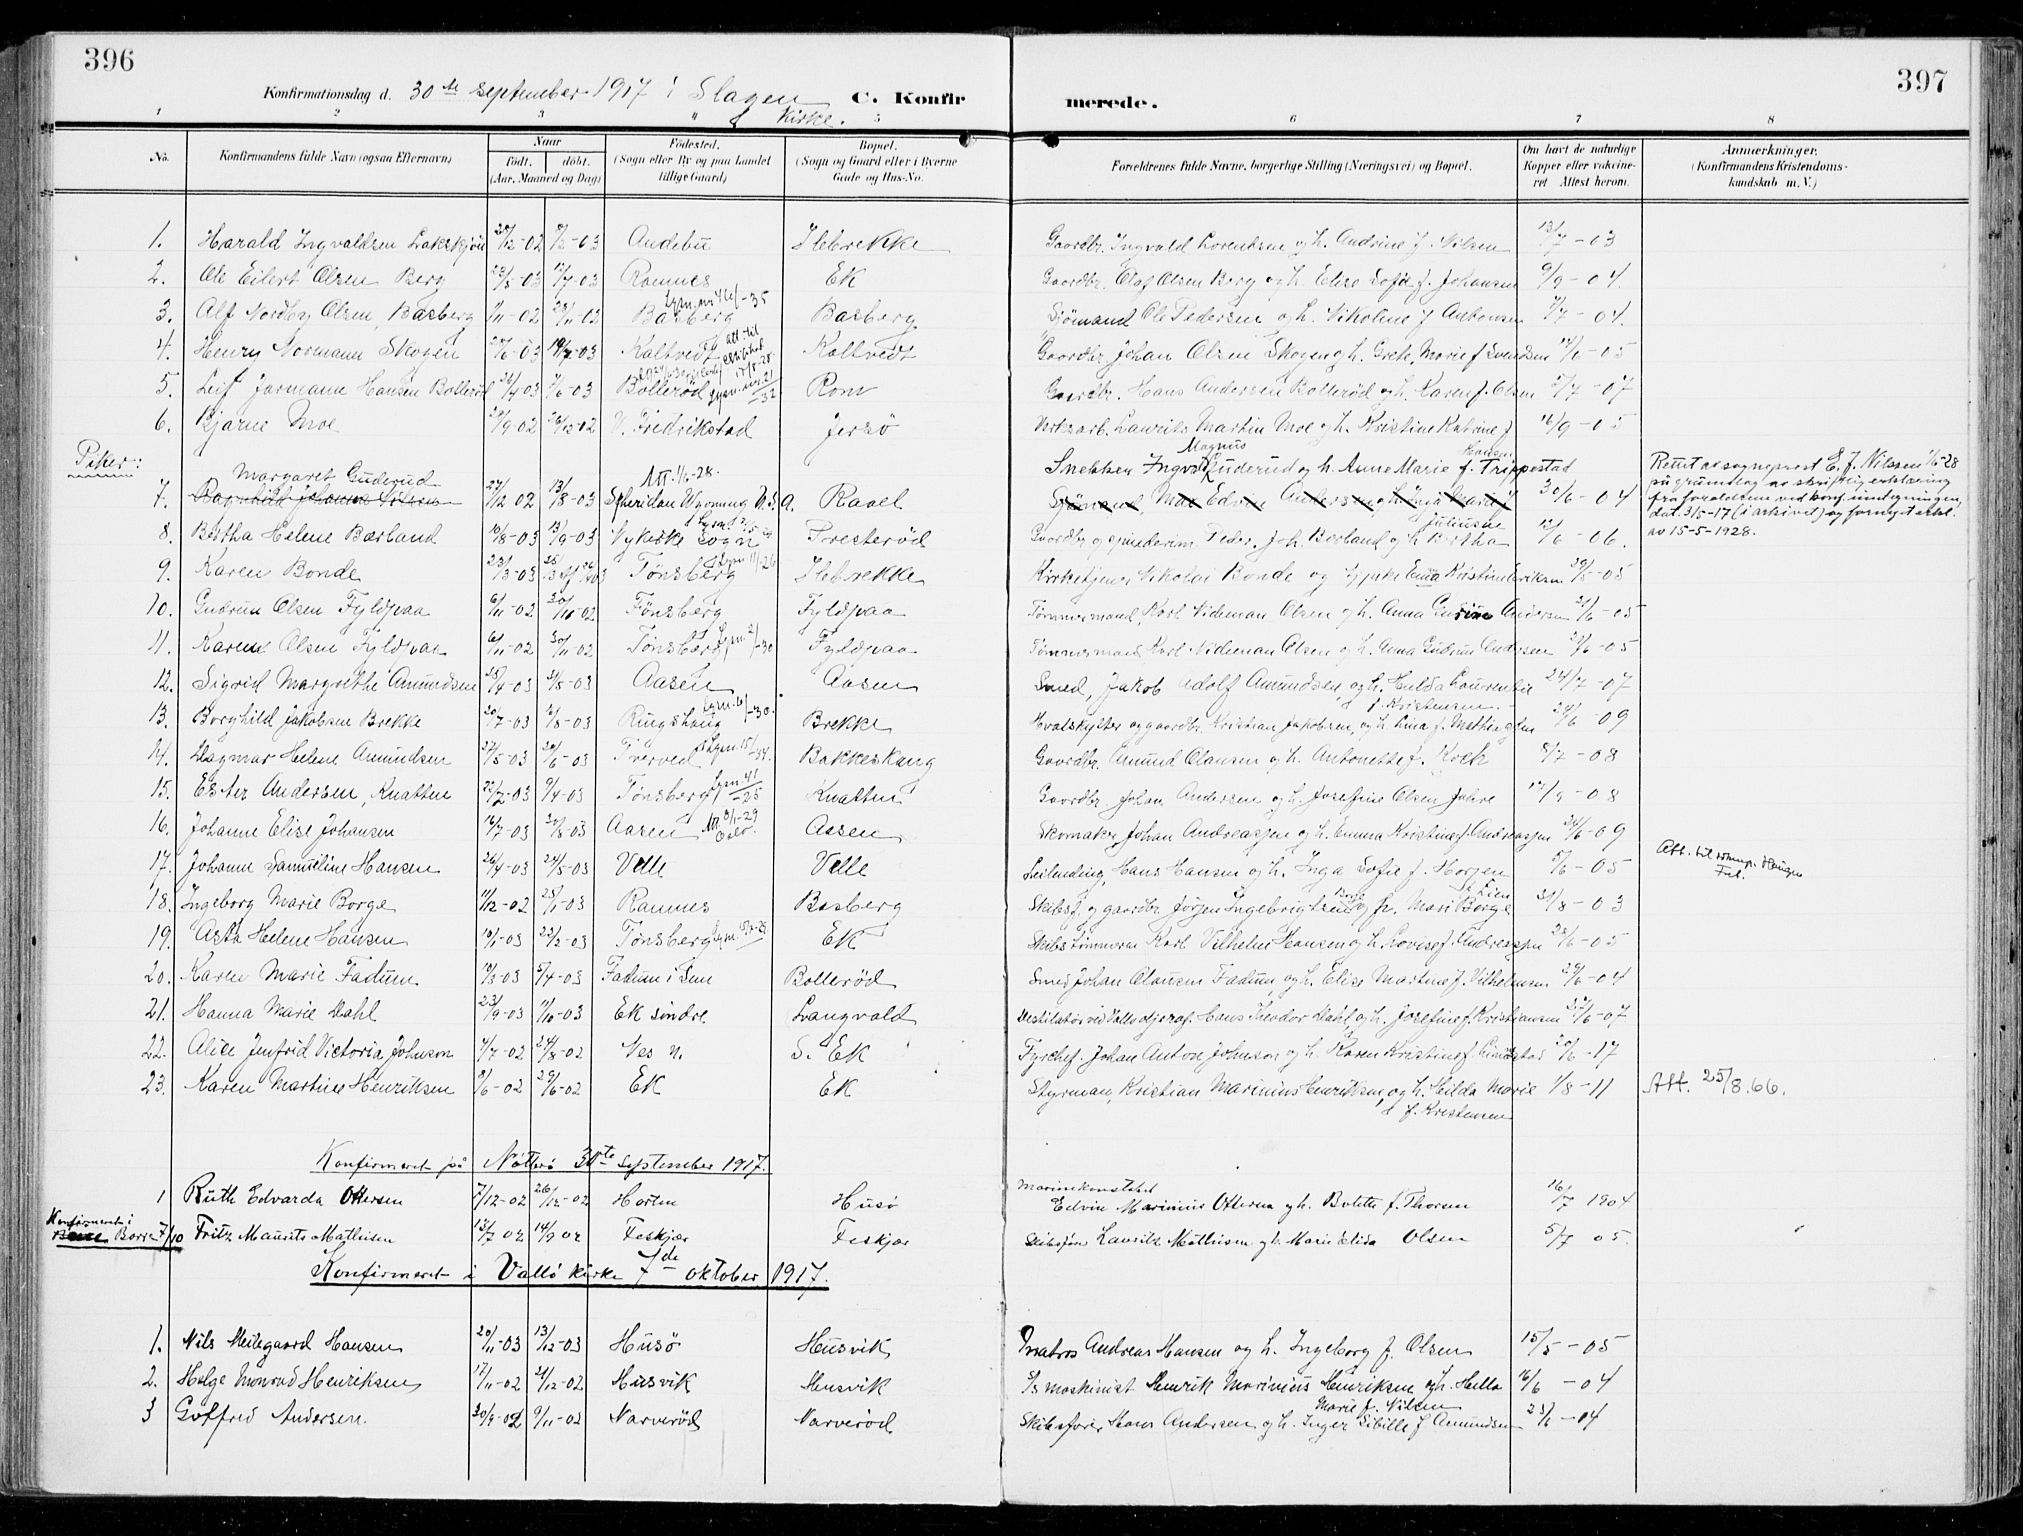 396
Konfirmationsdag d. 30te september 1917 i Slagen Kirke.
C. Konfirmerede.
397
1 2 3 4 5 6 7 8
No. Konfirmandens fulde Navn (ogsaa Efternavn) Naar født. døbt. (Aar, Maaned og Dag) Fødested. (Sogn eller By og paa Landet tillige Gaard) Bopæl. (Sogn og Gaard eller i Byerne Gade og Hus-No. Forældrenes fulde Navne, borgerlige Stilling (Næringsvei) og Bopæl. Om havt de naturlige Kopper eller vakcineret. Attest herom. Anmærkninger. (Konfirmandens Kristendomskundskab m. V.)
1. Harald Ingvaldsen 20/12-02 8/2-03 Andebu Ilebrekke Gaardbr. Ingvald Lorentsen og h. Andrine f. Nilsen 13/7-03
2. Ole Eilert Olsen Berg 23/5-03 12/7-03 Ramnes Ek Gaardbr. Olaf Olsen Berg og h. Elise Sofie f. Johansen 9/9-04.
3. Alf Nordby Olsen, Basberg 1/11-02 23/11-02 Basberg Basberg Sjömand Ole Pedersen og h. Nikoline f. Antonsen 7/7-04.
4. Henry Normann Skogen 27/6-03 19/7-03 Kaltvedt Kaltvedt Gaardbr. Johan Olsen Skogen og h. Grete Marie f. Svendsen 14/6-05
5. Leif Jarmann Hansen Bollerød 26/4-03 7/6-03 Bollerød Rom Gaardbr. Hans Andersen Bollerød og h. Karen f. Olsen 5/7-07
6. Bjarne Moe 29/9-02 26/12-02 V. Fredrikstad Jersö Verksarb. Laurits Martin Moe og h. Kristine Katrine f. 16/9-05
Piker:
Margaret Guderud Att. 1/6-28. Snekker Ingv. Magnus Guderud og h. Anne Marie f. Hansen Trippestad
7. Ragnhild Johanne Nilsen 27/12 02 13/8-03 Sheridan Wyoming U.S.A. Raael Sjömand, Max Edvin Andersen og h. Marie f. 30/6-04
Rettet av sogneprest E. J. Nilssen 1/6-28
på grundlag av skriftlig erklæring
fra forældrene ved konf. inntegningen
dat. 31/5-17 (i arkivet) og fornyet erkl.
av 15-5-1928.
8. Bertha Helene Bærland 10/8-03 13/9-03 Nykirke Sogn Presterød Gaardbr. og Peder Joh. Bærland og h. Bertha Juliusse 12/6-06.
9. Karen Bonde 23/3-03 Tønsberg Ilebrekke Kirketjener Nikolai Bonde og hustru Ema Kristine Eriksen 29/5-05
10. Gudrun Olsen Fyldpaa 6/11-02 30/11-02 Tønsberg Fyldpaa Tømmermand, Karl Nideman Olsen og h. Anna Gudrun Andersen 21/6-05
11. Karen Olsen Fyldpaa 6/11-02 30/11-02 Tønsberg Fyldpaa Tømmermand Karl Nideman Olsen og h. Anna Gudrun Andersen 21/6-05
12. Sigrid Margrethe Amundsen 25/4-03 31/5-03 Aasen Aasen Smed, Jakob Adolf Amundsen og h. Hulda Laurentse f. Kristensen 24/7-07
13. Borghild Jakobsen Brekke 20/7-03 Ringshaug Brekke Hvalskytter og gaardbr. Kristian Jakobsen, og h. Lina f. Mathingsen 24/6-09
14. Dagmar Helene Amundsen 27/5-03 20/6-03 Tverved Bakkeskaug Gaardbr. Amund Olausen og h. Antonette f. Kvek 8/7-08
15. Ester Andersen, Knatten 22/2-03 9/4-03 Tønsberg Knatten Gaardbr. Johan Andersen og h. Josefine Olsen Jahre 17/9-08
16. Johanne Elise Johansen 16/7-03 30/8-03 Aasen Att. 8/1-29 Oslo. Aasen Skomaker Johan Andreassen og h. Emma Kristine f. Andreassen 24/6-09
17. Johanne Samueline Hansen 26/4-03 24/5-03 Velle Velle Leilending, Hans Hansen og h. Inga Sofie f. Horgen 5/6-05
18. Ingeborg Marie Borge 11/12-02 25/1-03 Ramnes Basberg Skibsf. og gaardbr. Jørgen Ingebrigtsen Borge og h. Mari Borge f. Lien 31/8-03
19. Asta Helene Hansen 10/1-03 22/2-03 Tønsberg Ek Skibstømmerm Karl Vilhelm Hansen og h. Lovise f. Andreassen 28/6-05
20. Karen Marie Fadum 10/3-03 5/4-03 Fadum i Sem Bollerød Smed Johan Olausen Fadum, og h. Elise Martine f. Vilhelmsen 29/6-04
21. Hanna Marie Dahl 23/9-03 11/10-03 Ek söndre Langvald Destilatör ved Vallø oljeraf. Hans Teodor Dahl, og h. Josefine f. Kristiansen 22/6-07
22. Alice Jenfrid Victoria Johnson 4/7-02 24/8-02 Nes n. S. Ek Fyrchef. Johan Anton Johnson og h. Karen Kristine f. 20/6-17
23. Karen Martine Henriksen 8/6-02 29/6-02 Ek Ek Styrman, Kristian Marinius Henriksen, og h. Hilda Marie f. Kristensen 1/8-11 Att. 25/8.66.
Konfirmeret på Nøtterø 30te september 1917.
1 Ruth Edvarda Ottersen 7/12-02 26/12-02 Horten Husö Marinekonstabel Edvin Marinius Ottersen og h. Bolette f. Thorsen 16/7 1904
Konfirmeret i Borre 7/10 Fritz Maurits Mathisen 12/7 02 14/9 02 Feskjær Feskjær Skibsfører Lauritz Mathisen og h. Marie Elida Olsen 5/7 05.
Konfirmeret i Vallö kirke 7de oktober 1917.
1. Nils Meilegaard Hansen 20/11-03 13/12-03 Husö Husvik Matros Andreas Hansen og h. Ingeborg f. Olsen 15/5-05
2. Helge Monrad Henriksen 17/11-02 21/12-02 Husvik Husvik Maskinist Henrik Marinius Henriksen og h. Hella Marie f. Nilsen 16/6-04
3 Gotfred Andersen. 30/9-02 9/11-02 Narverød Narverød Skibsfører Hans Andersen og h. Inger Sibille f. Amundsen 23/6-04